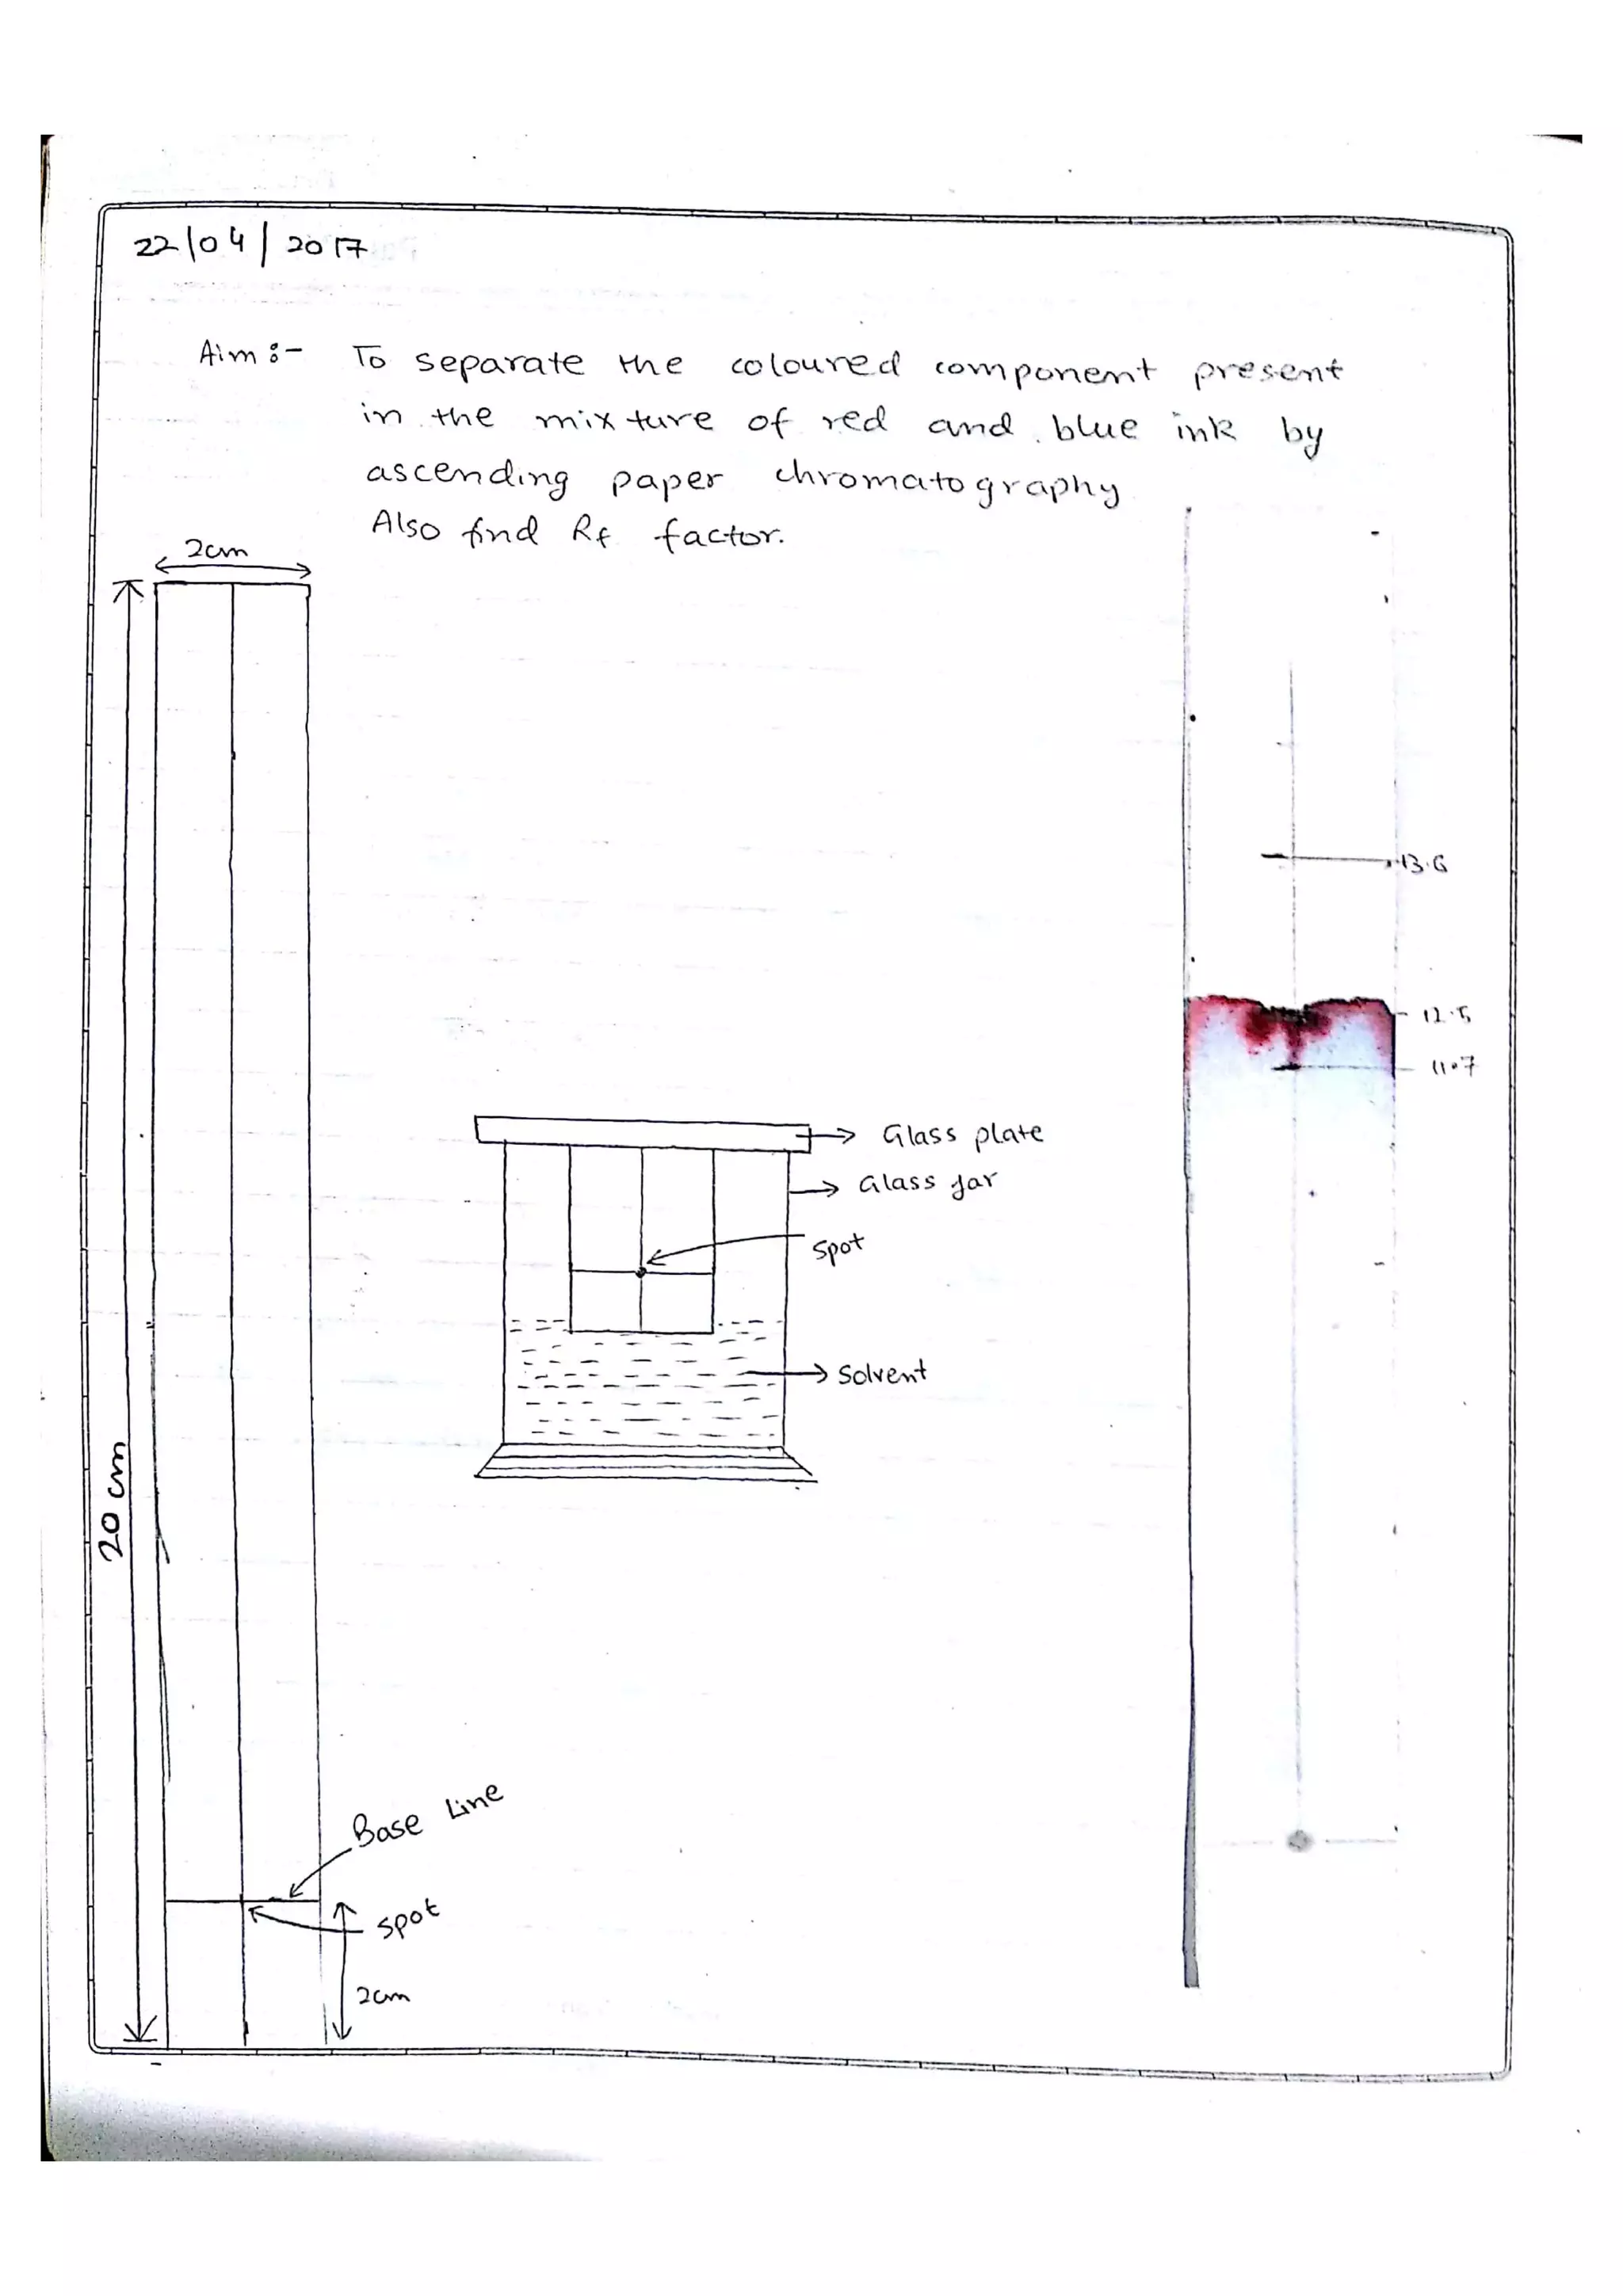 22/04/2017
Aim :- To separate the coloured component present
in the mixture of red and blue ink by
ascending paper chromatography
Also find Rf factor.
2cm
13.6
12.5
11.7
Glass plate
Glass jar
spot
Solvent
20 cm
Base Line
spot
2cm